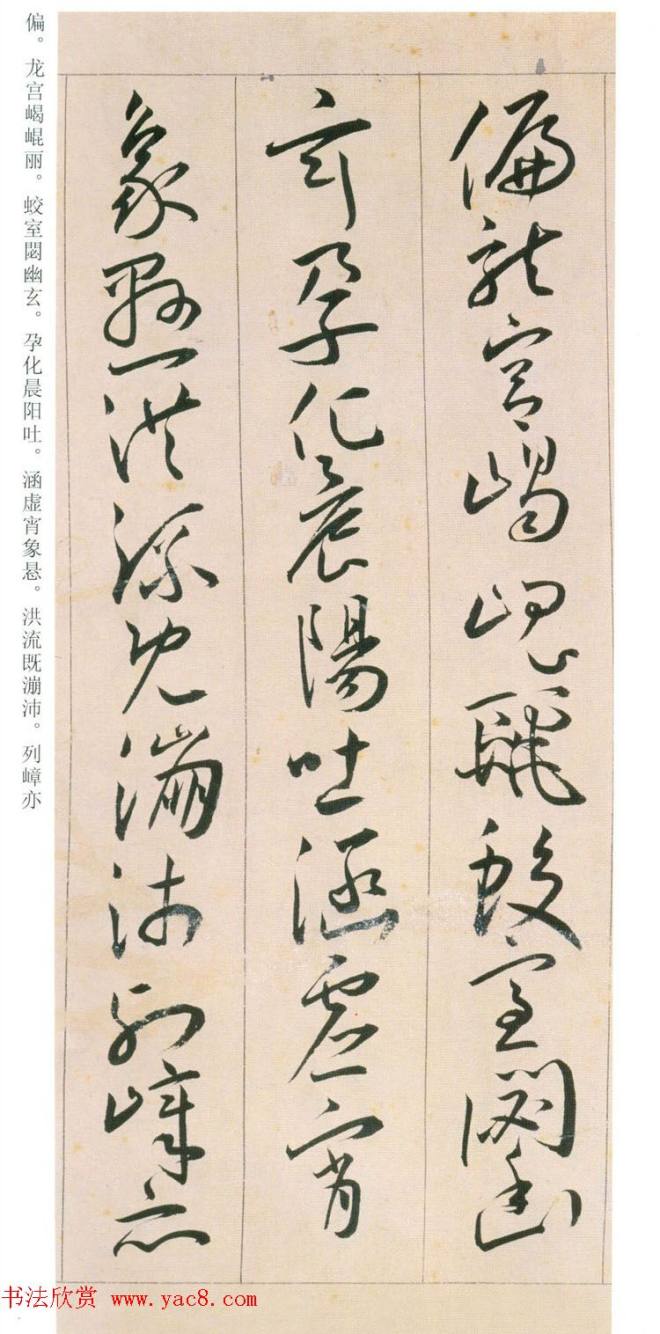 偏龙宫嵑崐麗蛟室閟幽
玄孕化晨陽吐涵虚宵
象懸洪流既漰沛列嶂亦
偏。龙宫嵑崐丽。蛟室閟幽玄。孕化晨阳吐。涵虚宵象悬。洪流既漰沛。列嶂亦
书法欣赏 www.yac8.com